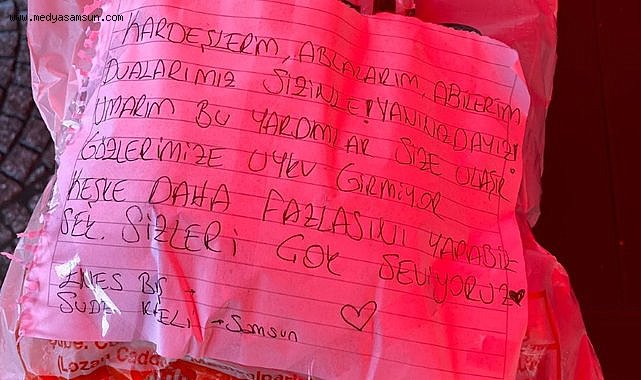 www.medyasamsun.com
KARDEŞLERİM, ABLALARIM, ABİLERİM
DUALARIMIZ SİZİNLE! YANINIZDAYIZ!
UMARIM BU YARDIMLAR SİZE ULAŞIR
GÖZLERİMİZE UYKU GİRMİYOR
KEŞKE DAHA FAZLASINI YAPABİL-
SEK. SİZLERİ ÇOK SEVİYORUZ
ENES
SUDE → Samsun
(Lozan Cadde